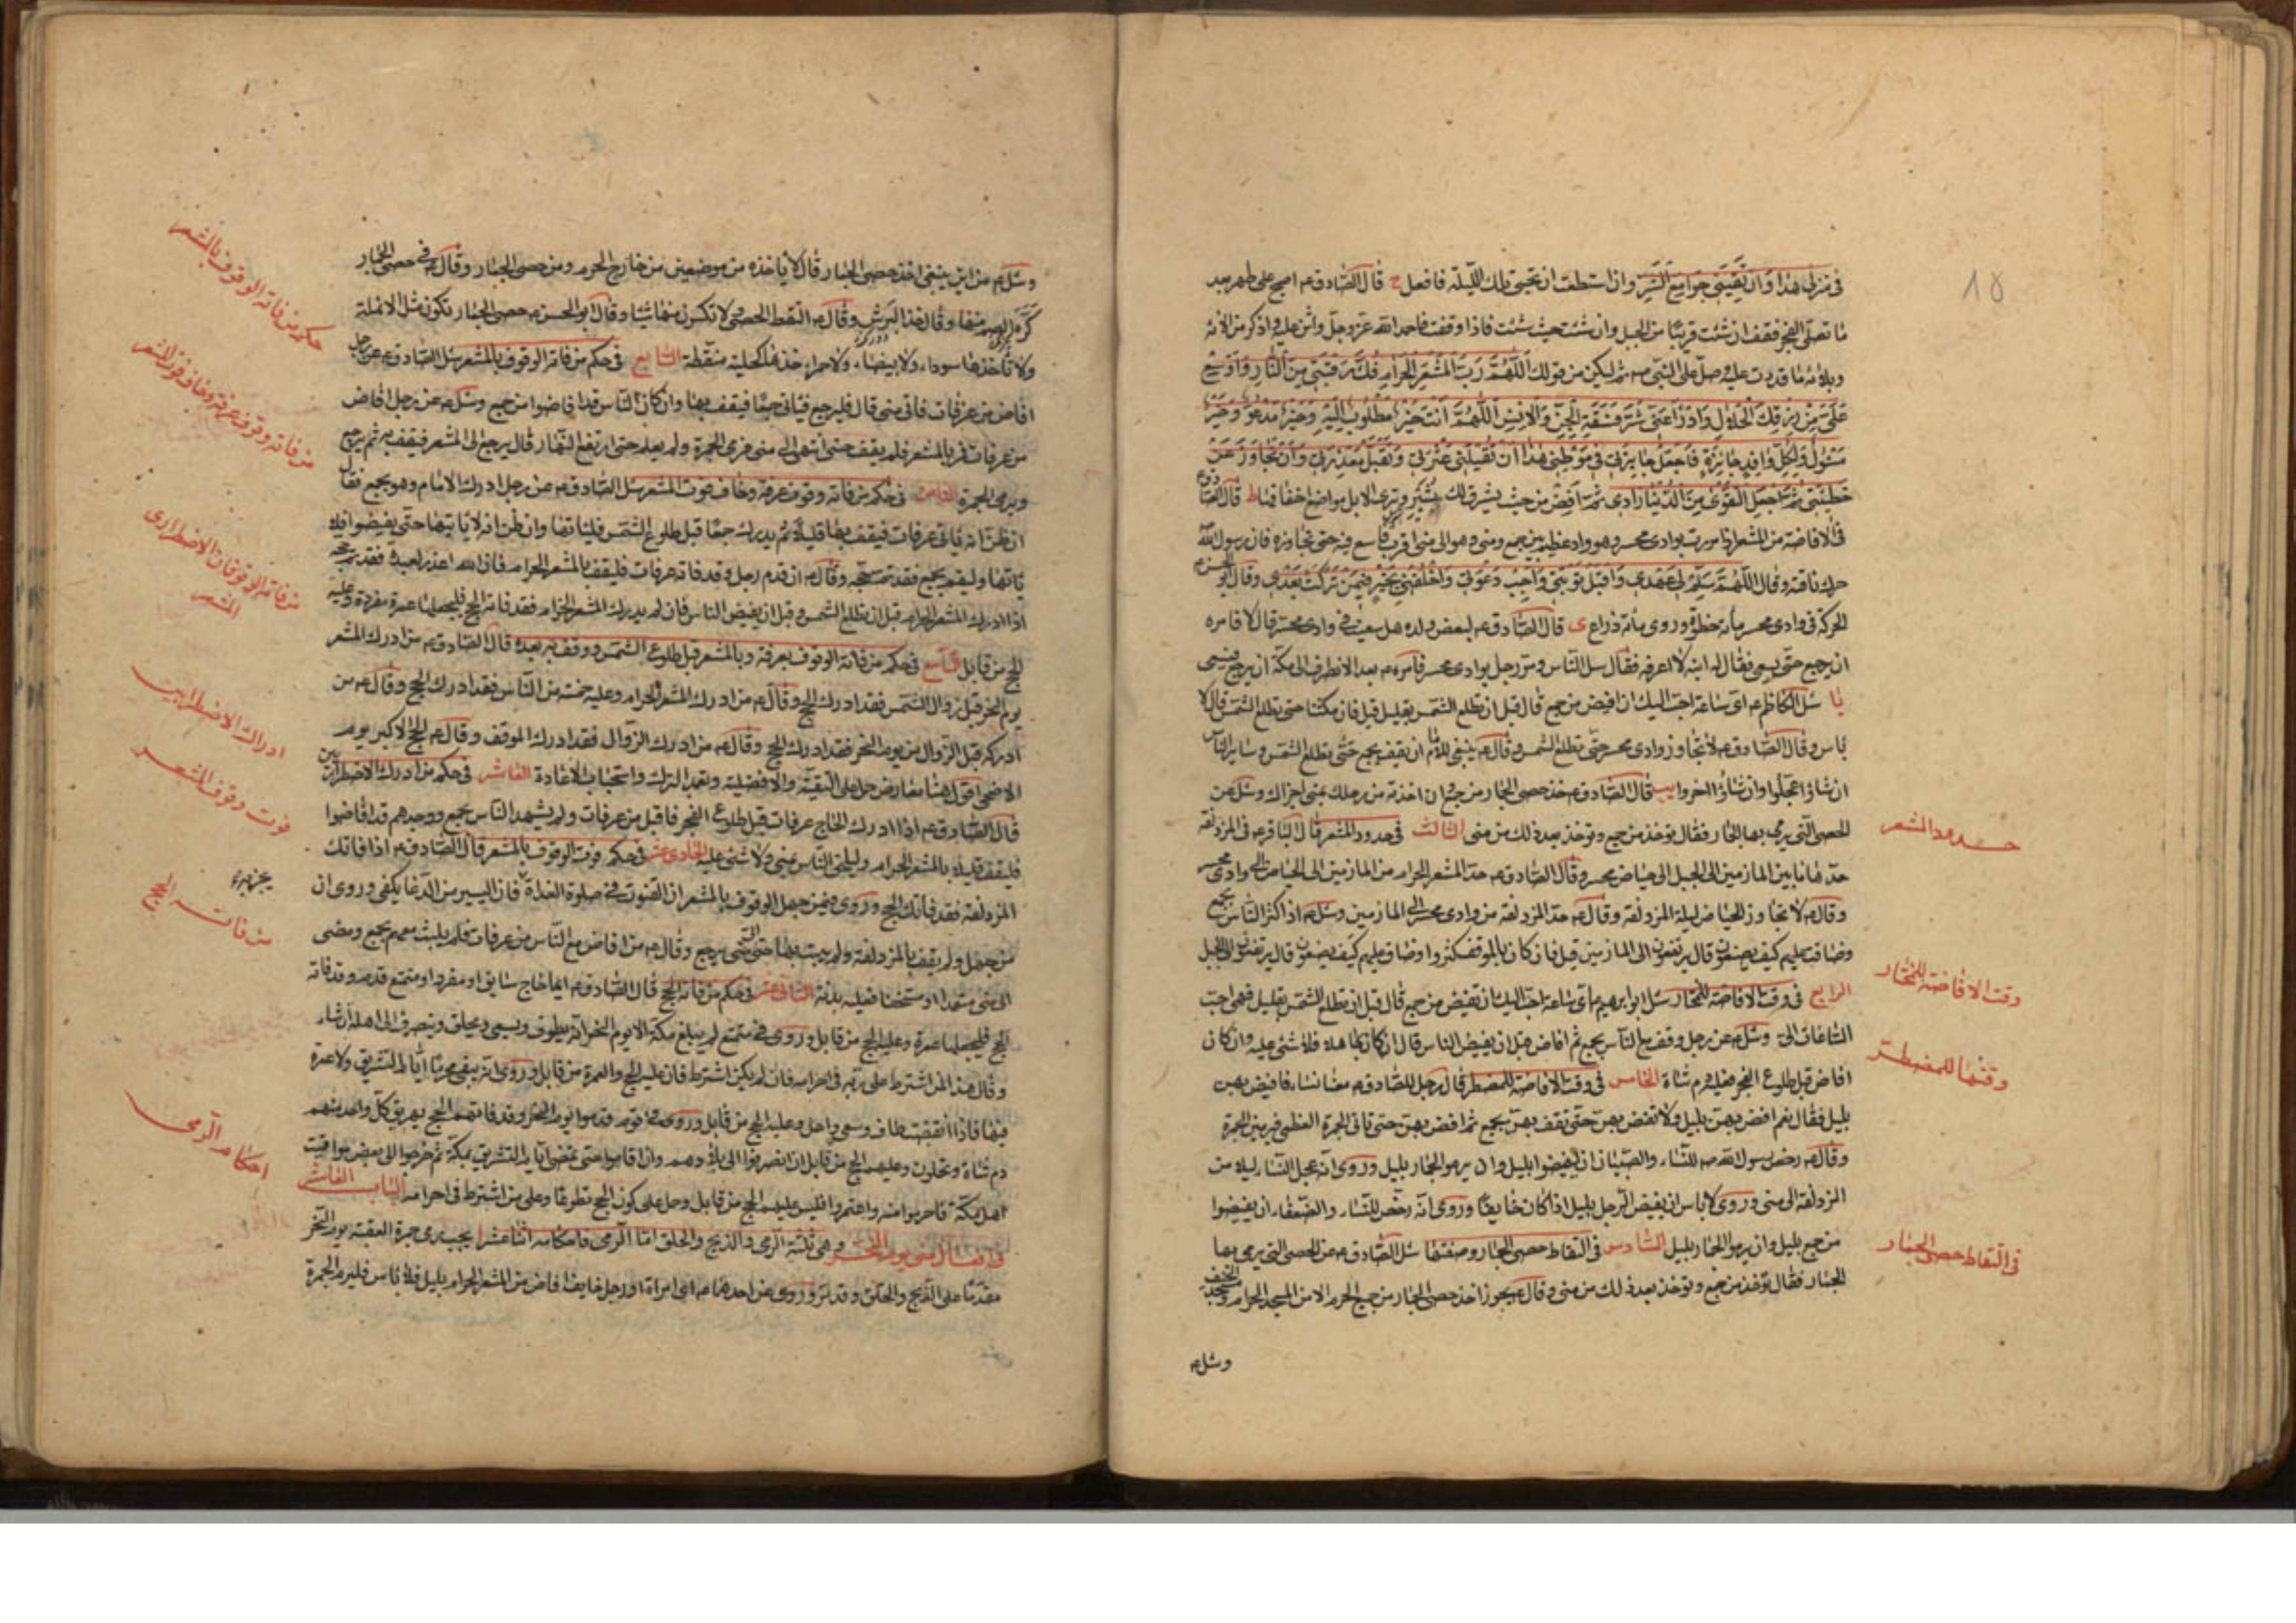 في منزلي هذا وان تقيني جوامع الشر وان استطعت ان تحيي تلك الليلة فافعل ح قال الصادق ع اصبح على طهر بعد
ما تصلي الفجر فقف ان شئت قريبا من الجبل وان شئت حيث شئت فاذا وقفت فاحمد الله عز وجل واثن عليه واذكر من الائه
وبلائه ما قدرت عليه وصل على النبي ص ثم ليكن من قولك اللهم رب المشعر الحرام فك رقبتي من النار واوسع
علي من رزقك الحلال وادرا عني شر فسقة الجن والانس اللهم انت خير مطلوب اليه وخير مدعو وخير
مسئول ولكل وافد جائزة فاجعل جايزتي في موطني هذا ان تقيلني عثرتي وتقبل معذرتي وان تجاوز عن
خطيئتي ثم اجعل التقوى من الدنيا زادي ثم افض حيث يشرق لك ثبير وترى الابل مواضع اخفافها ط قال الصادق ع
في الافاضة من المشعر اذا مررت بوادي محسر وهو واد عظيم بين جمع ومنى وهو الى منى اقرب فاسع فيه حتى تجاوزه فان رسول الله
حرك ناقته وقال اللهم سلم لي عهدي واقبل توبتي واجب دعوتي واخلفني بخير فيمن تركت بعدي وقال ابو الحسن ع
الحركة في وادي محسر مائة خطوة وروى مائة ذراع ي قال الصادق ع لبعض ولده هل سعيت في وادي محسر قال لا فامره
ان يرجع حتى يسعى فقال له ابنه لا اعرفه فقال سل الناس ومر رجل بوادي محسر فامره ع بعد الانصراف الى مكة ان يرجع فيسعى
يا سئل الكاظم ع اي ساعة احب اليك ان افيض من جمع قال قبل ان تطلع الشمس بقليل قيل فان مكثنا حتى تطلع الشمس قال لا
باس وقال الصادق ع لا تجاوز وادي محسر حتى تطلع الشمس وقال ع ينبغي للامام ان يقف بجمع حتى تطلع الشمس وساير الناس
ان شاؤا عجلوا وان شاؤا اخروا يب قال الصادق ع خذ حصى الجمار من جمع وان اخذته من رحلك بمنى اجزاك وسئل عن
الحصى التي يرمى بها الجمار فقال تؤخذ من جمع وتؤخذ بعد ذلك من منى الثالث في حدود المشعر قال الباقر ع في المزدلفة
حدها ما بين المازمين الى الجبل الى حياض محسر وقال الصادق ع حد المشعر الحرام من المازمين الى الحياض الى وادي محسر
وقال ع لا تجاوز الحياض ليلة المزدلفة وقال ع حد المزدلفة من وادي محسر الى المازمين وسئل ع اذا كثر الناس بجمع
وضاقت عليهم كيف يصنعون قال يرتفعون الى المازمين قيل فان كان بالموقف كثروا وضاق عليهم كيف يصنعون قال يرتفعون الى الجبل
الرابع في وقت الافاضة للمختار سئل ابو ابرهيم ع اي ساعة احب اليك ان تفيض من جمع قال قبل ان تطلع الشمس بقليل فهي احب
الساعات الي وسئل ع عن رجل وقف مع الناس بجمع ثم افاض قبل ان يفيض الناس قال ان كان جاهلا فلا شئ عليه وان كان
افاض قبل طلوع الفجر فعليه دم شاة الخامس في وقت الافاضة للمضطر قال رجل للصادق ع معنا نساء فافيض بهن
بليل فقال نعم افض بهن بليل ولا تفض بهن حتى تقف بهن بجمع ثم افض بهن حتى تاتي الجمرة العظمى فيرمين الجمرة
وقال ع رخص رسول الله ص للنساء والصبيان ان يفيضوا بليل وان يرموا الجمار بليل وروى انه عجل النساء ليلا من
المزدلفة الى منى وروى لا باس ان يفيض الرجل بليل اذا كان خائفا وروى انه رخص للنساء والضعفاء ان يفيضوا
من جمع بليل وان يرموا الجمار بليل السادس في التقاط حصى الجمار وصفتها سئل الصادق ع عن الحصى التي يرمى بها
الجمار فقال تؤخذ من جمع وتؤخذ بعد ذلك من منى وقال ع يجوز اخذ حصى الجمار من جميع الحرم الا من المسجد الحرام ومسجد الخيف
وسئل ع
حدود المشعر
وقت الافاضة للمختار
وقتها للمضطر
في التقاط حصى الجمار
١٥
وسئل ع من اين ينبغي اخذ حصى الجمار قال لا ياخذه من موضعين من خارج الحرم ومن حصى الجمار وقال ع في حصى الجمار
كره الصم منها وقال خذ البرش وقال ع التقط الحصى ولا تكسرن منها شيئا وقال ابو الحسن ع حصى الجمار تكون مثل الانملة
ولا تاخذها سوداء ولا بيضاء ولا حمراء خذها كحلية منقطة السابع في حكم من فاته الوقوف بالمشعر سئل الصادق ع عن رجل
افاض من عرفات فاتى منى قال فليرجع فياتي جمعا فيقف بها وان كان الناس قد افاضوا من جمع وسئل ع عن رجل افاض
من عرفات فمر بالمشعر فلم يقف حتى انتهى الى منى فرمى الجمرة ولم يعلم حتى ارتفع النهار قال يرجع الى المشعر فيقف به ثم يرجع
ويرمي الجمرة الثامن في حكم من فاته وقوف عرفة وخاف فوت المشعر سئل الصادق ع عن رجل ادرك الامام وهو بجمع فقال
ان ظن انه ياتي عرفات فيقف بها قليلا ثم يدرك جمعا قبل طلوع الشمس فلياتها وان ظن انه لا ياتيها حتى يفيضوا فلا
ياتها وليقم بجمع فقد تم حجه وقال ع ان قدم رجل وقد فاته عرفات فليقف بالمشعر الحرام فان الله اعذر لعبده فقد تم حجه
اذا ادرك المشعر الحرام قبل ان تطلع الشمس وقبل ان يفيض الناس فان لم يدرك المشعر الحرام فقد فاته الحج فليجعلها عمرة مفردة وعليه
الحج من قابل التاسع في حكم من فاته الوقوف بعرفة وبالمشعر قبل طلوع الشمس ووقف به بعده قال الصادق ع من ادرك المشعر
يوم النحر قبل زوال الشمس فقد ادرك الحج وقال ع من ادرك المشعر الحرام وعليه خمسة من الناس فقد ادرك الحج وقال ع من
ادركه قبل الزوال من يوم النحر فقد ادرك الحج وقال ع من ادرك الزوال فقد ادرك الموقف وقال ع الحج الاكبر يوم
الاضحى اقول هنا معارض حمل على التقية والافضلية وتعمد الترك واستحباب الاعادة العاشر في حكم من ادرك الاضطراريين
قال الصادق ع اذا ادرك الحاج عرفات قبل طلوع الفجر فاقبل من عرفات ولم يشهد الناس بجمع ووجدهم قد افاضوا
فليقف قليلا بالمشعر الحرام وليلحق الناس بمنى ولا شئ عليه الحادي عشر في حكم فوت الوقوف بالمشعر قال الصادق ع اذا فاتك
المزدلفة فقد فاتك الحج وروى فيمن جهل الوقوف بالمشعر ان القنوت في صلوة الغداة فان اليسير من الدعا يكفي وروى ان
من جهل ولم يقف بالمزدلفة ولم يبت بها حتى اتى منى يرجع وقال ع من افاض مع الناس من عرفات فلم يلبث معهم بجمع ومضى
الى منى متعمدا او مستخفا فعليه بدنة الثاني عشر في حكم من فاته الحج قال الصادق ع ايما حاج سايق او مفرد او متمتع قدم وقد فاته
الحج فليجعلها عمرة وعليه الحج من قابل وروى في متمتع لم يبلغ مكة الا يوم النحر انه يطوف ويسعى ويحلق وينصرف الى اهله ان شاء
وقال هذا لمن اشترط على ربه في احرامه فان لم يكن اشترط فان عليه الحج والعمرة من قابل وروى انه يبقى محرما ايام التشريق ولا عمرة
فيها فاذا انقضت طاف وسعى واحل وعليه الحج من قابل وروى في قوم قدموا يوم النحر وقد فاتهم الحج يهريق كل واحد منهم
دم شاة ويحلون وعليهم الحج من قابل ان انصرفوا الى بلادهم وان اقاموا حتى تمضي ايام التشريق بمكة ثم خرجوا الى بعض مواقيت
اهل مكة فاحرموا منه واعتمروا فليس عليهم الحج من قابل وحمل على كون الحج تطوعا وعلى من اشترط في احرامه الباب العاشر
في افعال منى يوم النحر وهي ثلثة الرمي والذبح والحلق اما الرمي فاحكامه اثنا عشر ا يجب رمي جمرة العقبة يوم النحر
مقدما على الذبح والحلق وقد مر وروى عن احدهما ع اي امراة او رجل خايف افاض من المشعر الحرام بليل فلا باس فليرم الجمرة
حكم من فاته الوقوف بالمشعر
من فاته وقوف عرفة وخاف فوت المشعر
من فاته الوقوفان الاضطراري
المشعر
ادراك الاضطراريين
فوت وقوف المشعر
يجزيه
من فاته الحج
احكام الرمي